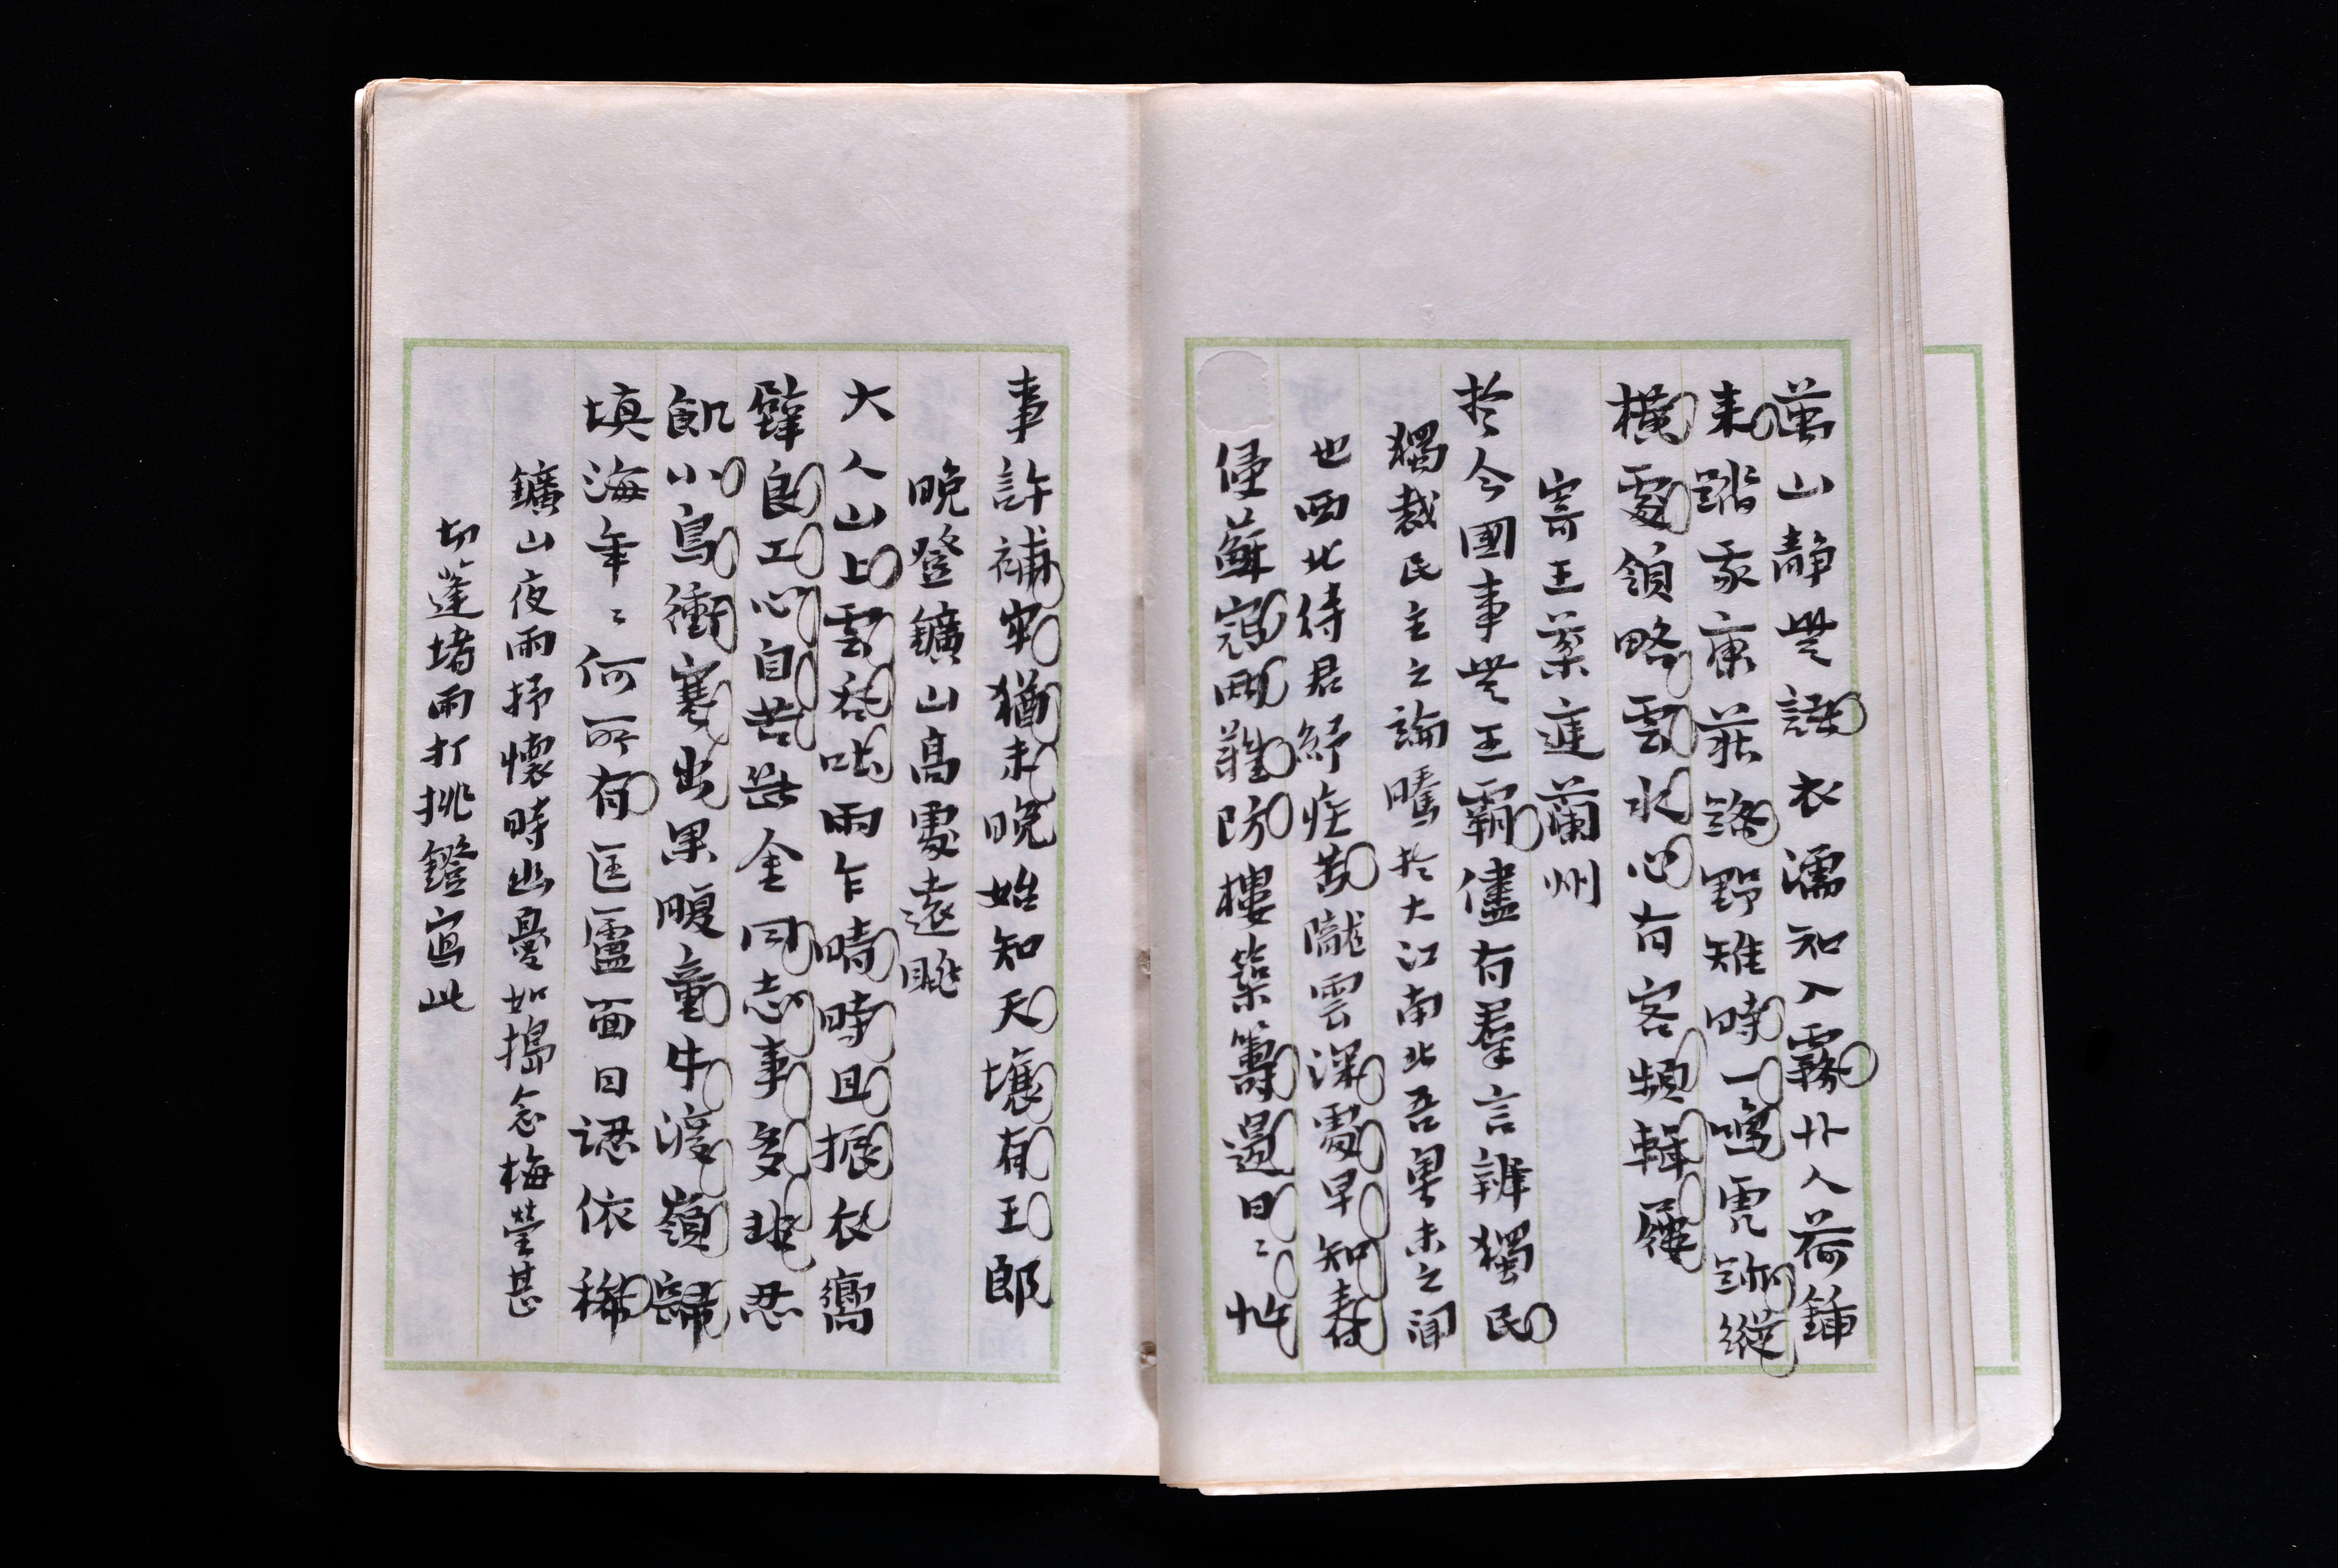 萬山靜無語衣濡知入霧廿人荷鍤
來踏我康莊路野雉時一鳴虎跡縱
橫處領略雲水心有客頻輯屨
寄王蔭蘭州
於今國事無王霸儘有羣言辨獨民
獨裁民主之論囂於大江南北吾輩未之聞
也西北待君紓疾苦隴雲深處早知春
侵蘇寇兩難防樓築籌邊日〻忙
事許補牢猶未晚始知天壤有王郎
晚登鑛山高處遠眺
大人山上雲吞吐雨乍晴時且振衣寫
孽良工心自苦無金同志事多違忍
飢小鳥衝寒出果腹童牛渡嶺歸
填海年〻何所有匡廬面目認依稀
鑛山夜雨抒懷時幽憂如擣念梅瑩甚
切蓬堵雨打挑鐙寫此